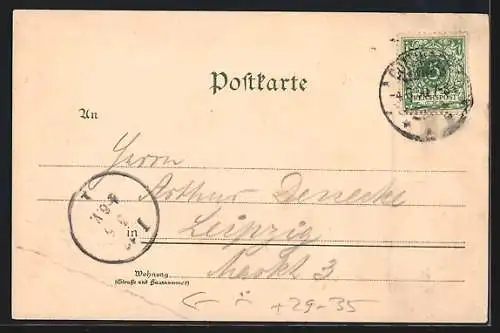 Postkarte
5
REICHSPOST
An
Herrn
Arthur Denecke
in Leipzig
Markt 3
Wohnung
(Straße und Hausnummer)
+29-35